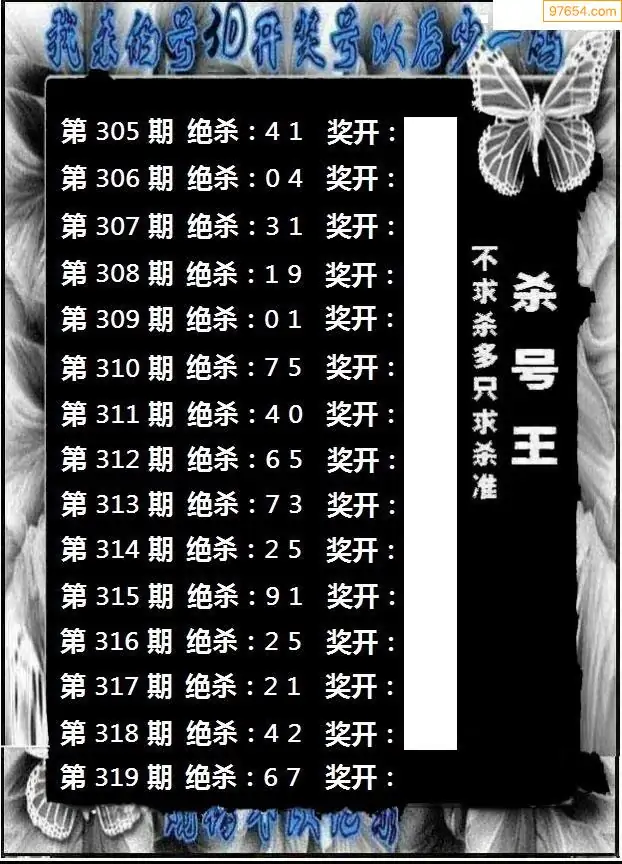 97654.com
我杀的号3D开奖号以后少一码
第305期 绝杀：41 奖开：
第306期 绝杀：04 奖开：
第307期 绝杀：31 奖开：
第308期 绝杀：19 奖开：
第309期 绝杀：01 奖开：
第310期 绝杀：75 奖开：
第311期 绝杀：40 奖开：
第312期 绝杀：65 奖开：
第313期 绝杀：73 奖开：
第314期 绝杀：25 奖开：
第315期 绝杀：91 奖开：
第316期 绝杀：25 奖开：
第317期 绝杀：21 奖开：
第318期 绝杀：42 奖开：
第319期 绝杀：67 奖开：
杀号王
不求杀多只求杀准